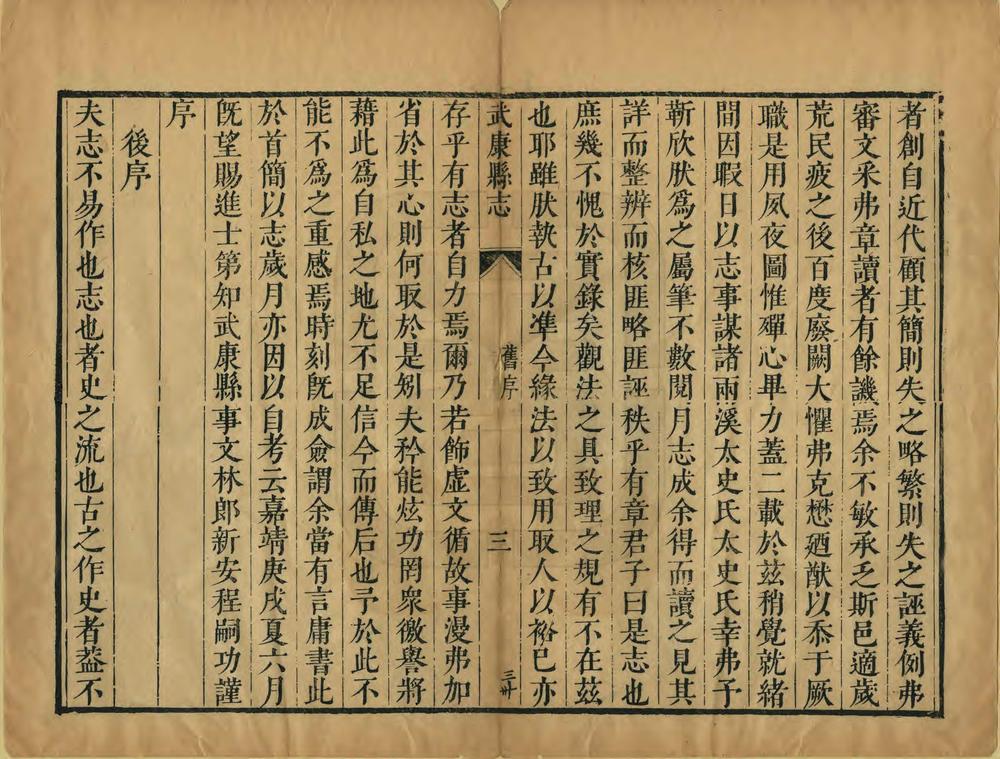 者創自近代顧其簡則失之略繁則失之誣義例弗
審文采弗章讀者有餘譏焉余不敏承乏斯邑適歲
荒民疲之後百度廢闕大懼弗克懋廼猷以忝于厥
職是用夙夜圖惟殫心畢力蓋二載於茲稍覺就緒
間因暇日以志事謀諸兩溪太史氏太史氏幸弗予
靳欣肰爲之屬筆不數閱月志成余得而讀之見其
詳而整辨而核匪略匪誣秩乎有章君子曰是志也
庶幾不愧於實錄矣觀法之具致理之規有不在茲
也耶雖肰執古以準今緣法以致用取人以裕已亦
武康縣志
舊序
三
三卅
存乎有志者自力焉爾乃若飾虛文循故事漫弗加
省於其心則何取於是矧夫矜能炫功罔衆徼譽將
藉此爲自私之地尤不足信今而傳后也予於此不
能不爲之重感焉時刻旣成僉謂余當有言庸書此
於首簡以志歲月亦因以自考云嘉靖庚戌夏六月
旣望賜進士第知武康縣事文林郎新安程嗣功謹
序
後序
夫志不易作也志也者史之流也古之作史者葢不